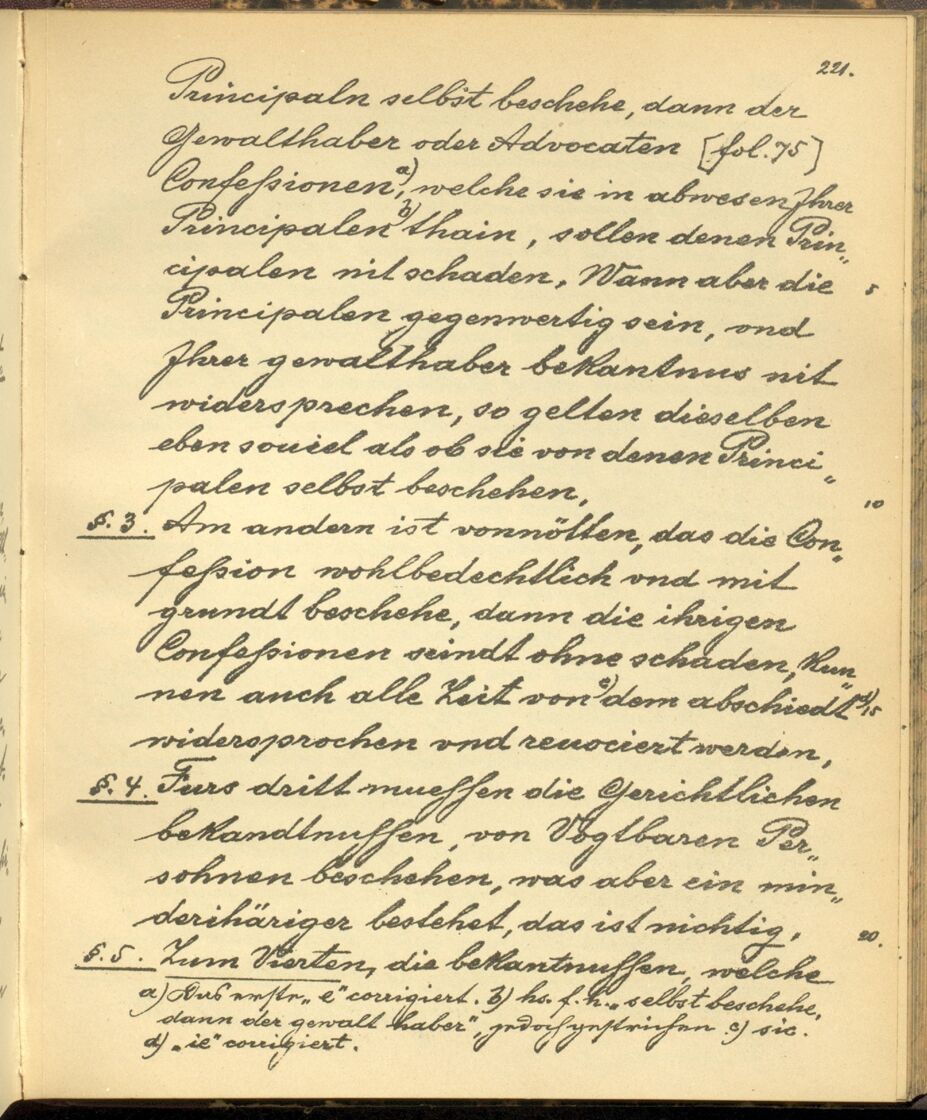 221.
Principaln selbst beschehe, dann der
Gewalthaber oder Advocaten [fol. 75]
Confeßionen a), welche sie in abwesen Ihrer
Principalen b) thain, sollen denen Prin„
cipalen nit schaden, Wann aber die 5
Principalen gegenwertig sein, vnd
Ihrer gewalthaber bekantnus nit
widersprechen, so gelten dieselben
eben souiel als ob sie von denen Princi„
palen selbst beschehen, 10
§. 3. Am andern ist vonnötten, das die Con„
feßion wohlbedechtlich vnd mit
grundt beschehe, dann die ihrigen
Confeßionen seindt ohne schaden, kun„
nen auch alle Zeit von c) dem abschiedt d) 15
widersprochen vnd reuociert werden,
§. 4. Furs dritt muessen die Gerichtlichen
bekandtnussen, von Vogtbaren Per„
sohnen beschehen, was aber ein min„
derihäriger bestehet, das ist nichtig, 20.
§. 5. Zum Vierten, die bekantnussen, welche
a) Das erste „e" corrigiert. b) hs. f. h. „selbst beschehe,
dann der gewalt haber", jedoch gestrichen c) sic.
d) „ie" corrigiert.